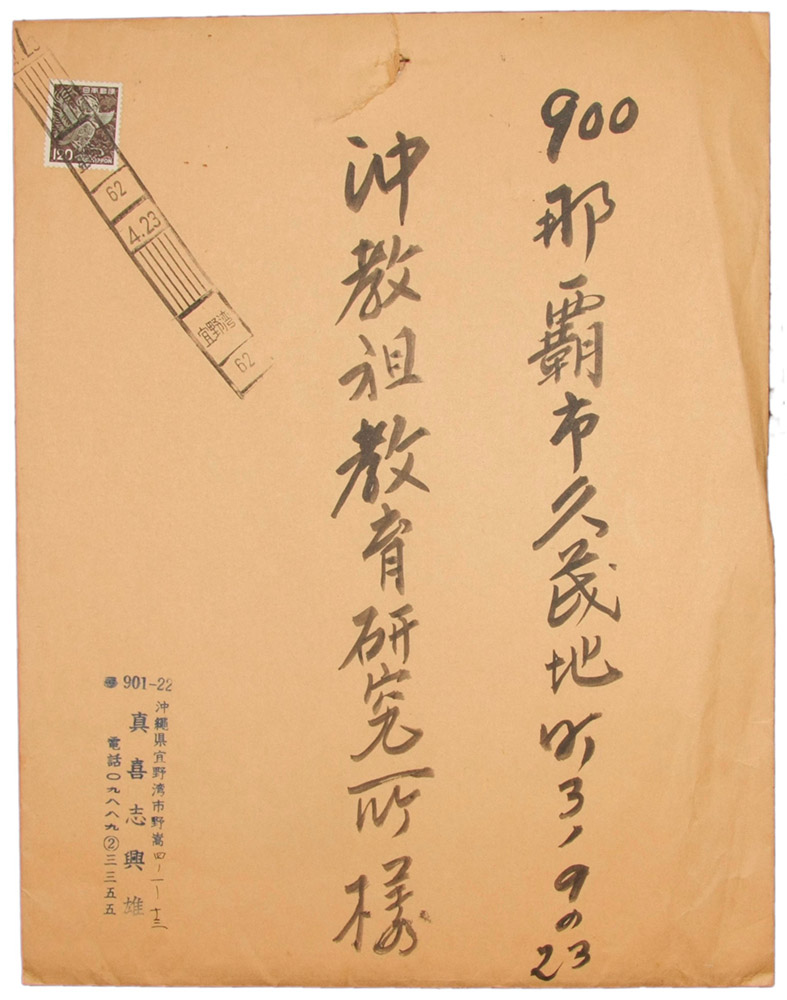 900
那覇市久茂地町3,9の23
沖教祖教育研究所様
日本郵便
120
NIPPON
62
4.23
宜野湾
62
901-22
沖縄県宜野湾市野嵩四ノ一ノ十三
真喜志興雄
電話〇九八八九②三三五五